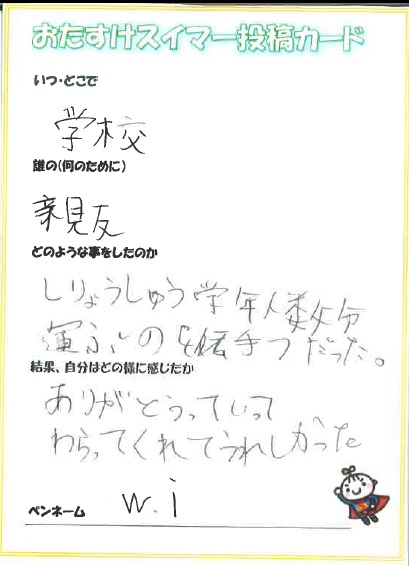 おたすけスイマー投稿カード
いつ・どこで
学校
誰の(何のために)
親友
どのような事をしたのか
しりょうしゅう学年人数分
運ぶの手つだった。
結果、自分はどの様に感じたか
ありがとうっていって
わらってくれてうれしかった
ペンネーム W.i